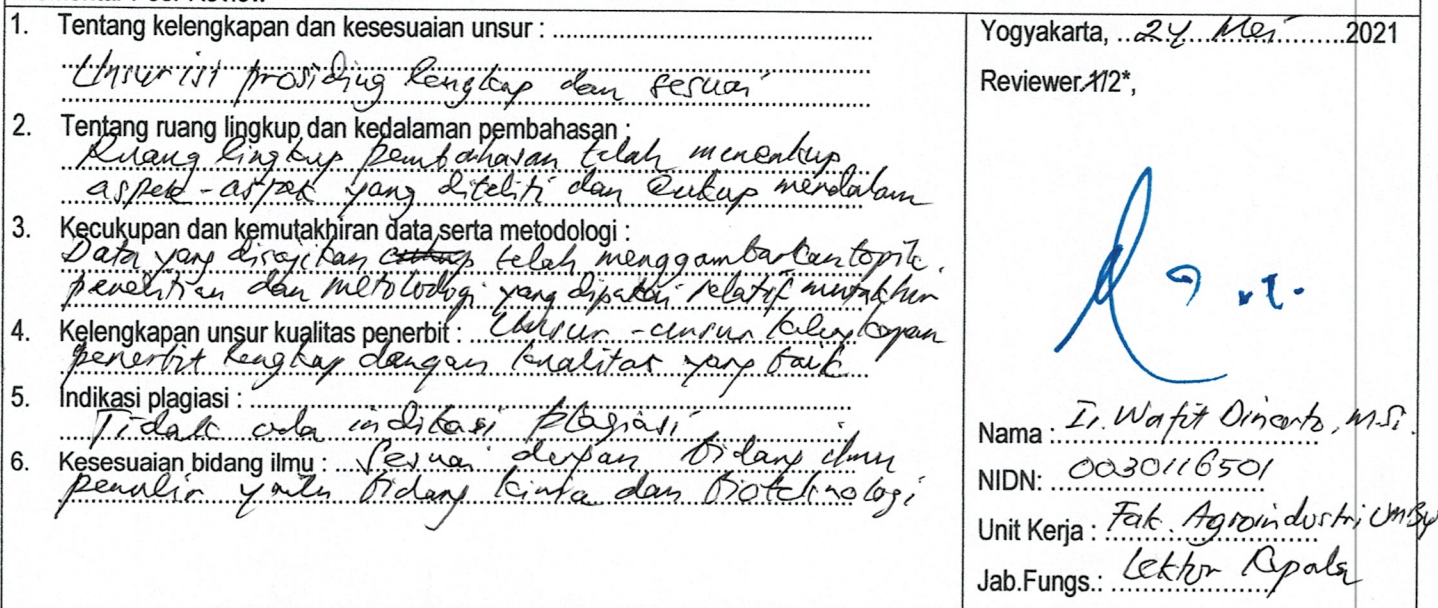 1. Tentang kelengkapan dan kesesuaian unsur :
Unsur isi prosiding lengkap dan sesuai
2. Tentang ruang lingkup dan kedalaman pembahasan :
Ruang lingkup pembahasan telah mencakup
aspek-aspek yang diteliti dan cukup mendalam
3. Kecukupan dan kemutakhiran data serta metodologi :
Data yang disajikan telah menggambarkan topik
penelitian dan metolodogi yang dipakai relatif mutakhir
4. Kelengkapan unsur kualitas penerbit : Unsur-unsur kelengkapan
penerbit lengkap dengan kualitas yang baik
5. Indikasi plagiasi :
Tidak ada indikasi plagiasi
6. Kesesuaian bidang ilmu : Sesuai dengan bidang ilmu
penulis yaitu bidang kimia dan bioteknologi
Yogyakarta, 24 Mei 2021
Reviewer 1/2*,
Nama : Ir. Wafit Dinarto, M.Si.
NIDN: 0030116501
Unit Kerja : Fak. Agroindustri UMBY
Jab.Fungs.: Lektor Kepala